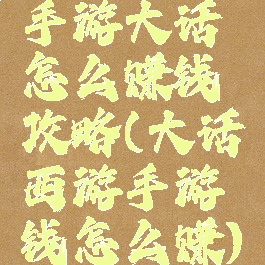 手游大话
怎么赚钱
攻略(大话
西游手游
钱怎么赚)